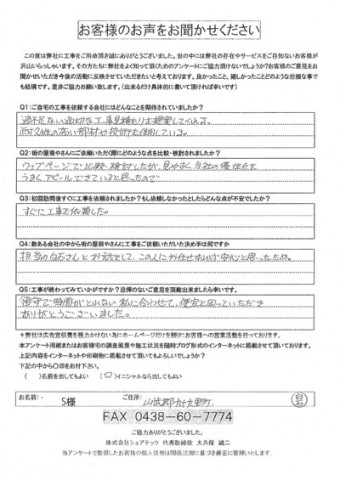 お客様のお声をお聞かせください
この度は弊社に工事をご用命頂き誠にありがとうございました。世の中には弊社の存在やサービスをご存知ないお客様が
沢山いらっしゃいます。その方たちに弊社をよく知って頂くためのアンケートにご協力頂けないでしょうか?お客様のご意見をお
聞かせいただき今後の活動に反映させていただきたいと考えております。良かったこと、嬉しかったことどのような些細な事で
も結構です。是非ご協力お願い致します。(出来るだけ具体的に書いて頂ければ幸いです)
Q1:ご自宅の工事を依頼する会社にはどんなことを期待されていましたか?
過不足ない適切な工事見積もりを提案してくれる。
耐久性の高い部材や技術を使用している。
Q2:街の屋根やさんにご依頼いただく際にどのような点を比較・検討されましたか?
ウェブページで比較・検討したが、見やすく、自社の優位点を
うまくアピールできていると思ったので
Q3:初回訪問後すぐに工事を依頼されましたか?もし依頼しなかったとしたらどんな点が不安でしたか?
すぐに工事を依頼した。
Q4:数ある会社の中から街の屋根やさんに工事をご依頼いただいた決め手は何ですか
担当の白石さんとお話をして、この人にお任せすれば安心と思ったため。
Q5:工事が終わってみていかがですか?忌憚のないご意見を頂戴出来ましたら幸いです。
留守で時間がとれない私に合わせて、便宜を図っていただき
ありがとうございました。
*弊社は広告宣伝費を極力かけない為にホームページだけを頼りにお客様への営業活動を行っております。
本アンケート用紙またはお客様宅の調査風景や施工状況を随時ブログ形式のインターネットに掲載させて頂いております。
上記内容をインターネットや印刷物に掲載させて頂いてもよろしいでしょうか?
下記の中から〇印をお付下さい。
( )名前を出してもよい (○)イニシャルなら出してもよい
お名前: S様 ご住所: 山武郡九十九里町
FAX 0438-60-7774
ご協力ありがとうございました。
株式会社シェアテック 代表取締役 大久保 誠二
当アンケートで取得したお客様の個人信号は関係法規に基づき厳正に管理いたします。